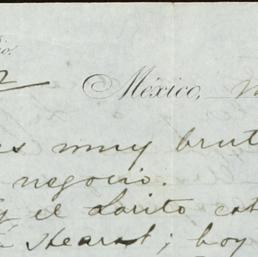 México,
es muy brut
negocio.
y el Lorito cot
Hearst; hoy